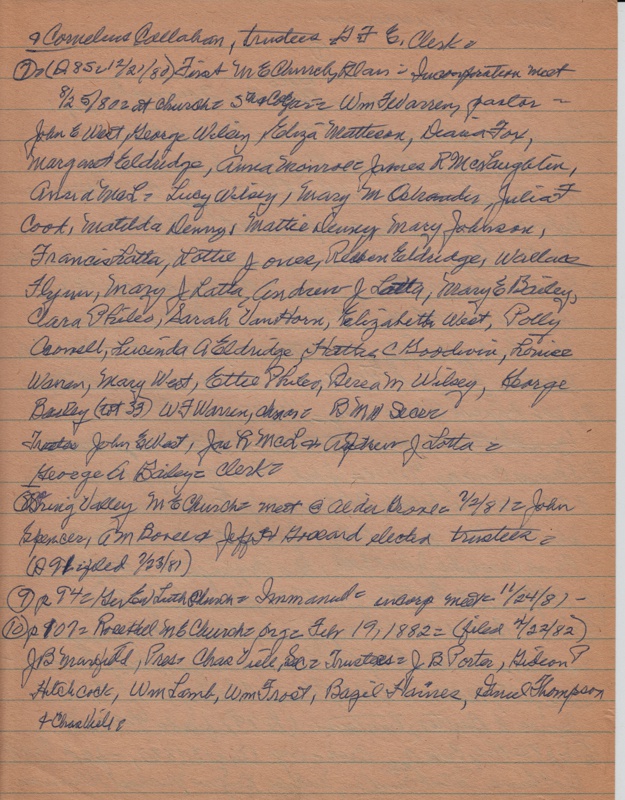 & Cornelius Callahan, trustees G F E. Clerk =
⑦ (p 85 = 12/21/80) First M E Church, = Incorporation meet
8/25/80 = at church = = Wm F Warren, pastor -
John E West, George Wilsey, Eliza Matteson, Diana Fox,
Margaret Eldridge, Anna Monroe = James R McLaughlin,
Anna McL = Lucy Wilsey, Mary M Ostrander, Julia F
Cook, Matilda Denny, Mattie Denny Mary Johnson,
Francis Latta, Lottie Jones, Reuben Eldridge, Wallace
Flynn, Mary J Latta, Andrew J Latta, Mary E Bailey,
Clara Phileo, Sarah VanHorn, Elizabeth West, Polly
Lucinda A Eldridge, C Goodwin, Louise
Warren, Mary West, Ettie Phileo, M Wilsey, George
Bailey (tot 33) W F Warren, chmn = B M H Secre
Trustees John E West, Jas R McL & Andrew J Latta =
George A Bailey = Clerk =
⑧ Spring Valley M E Church = meet @ Alda = 7/2/81 = John
Spencer, A M & Jeff H elected trustees =
(p 91 filed 7/23/81)
⑨ p 94 = Ger Ev Luth Church = Immanuel = incorp meet = 11/24/81 -
⑩ p 107 = M E Church = org = Feb 19, 1882 = (filed 2/22/82)
J B Pres = Chas Viele, Sec = Trustees = J B Porter, Gideon P
Hitchcock, Wm Lamb, Wm Frost, Bazil Haines, Thompson
& Chas Viele =